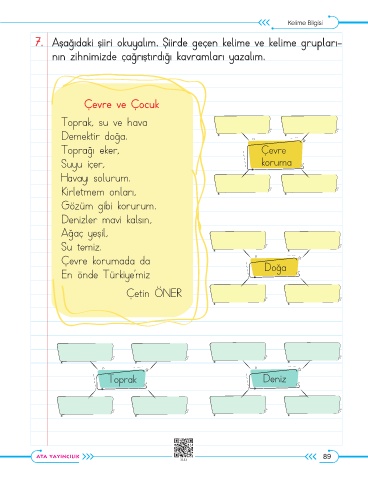 Kelime Bilgisi
7. Aşağıdaki şiiri okuyalım. Şiirde geçen kelime ve kelime grupları-
nın zihnimizde çağrıştırdığı kavramları yazalım.
Çevre ve Çocuk
Toprak, su ve hava
Demektir doğa.
Toprağı eker,
Suyu içer,
Havayı solurum.
Kirletmem onları,
Gözüm gibi korurum.
Denizler mavi kalsın,
Ağaç yeşil,
Su temiz.
Çevre korumada da
En önde Türkiye'miz
Çetin ÖNER
Çevre
koruma
Doğa
Toprak
Deniz
ATA YAYINCILIK
89